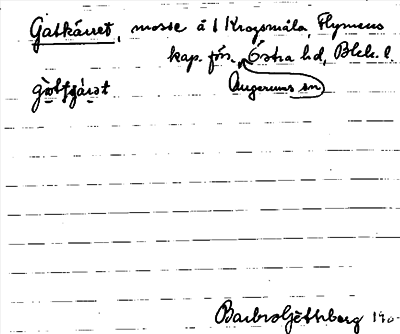 Gatkärret, mosse å 1 Krogsmåla, Flymens
kap. förs. Östra hd, Blek. l
Augerums sn
Barbro Götterberg 190